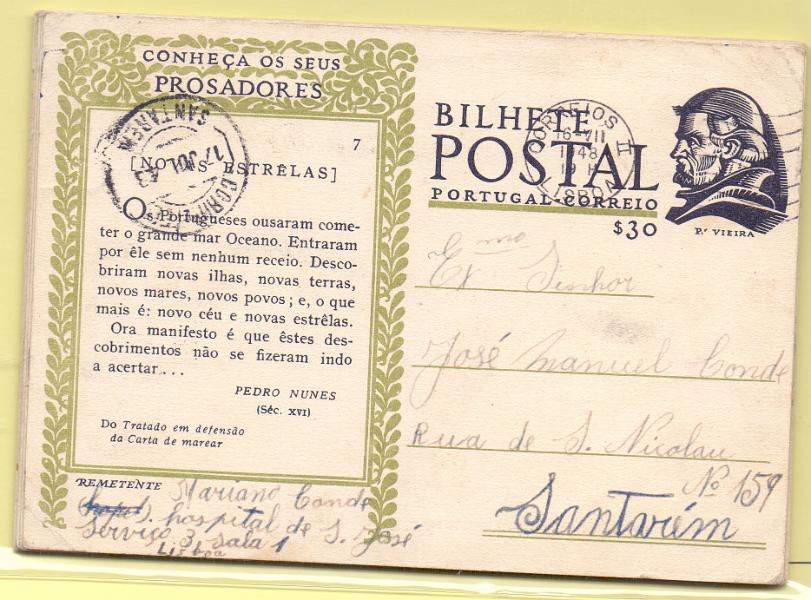 CONHEÇA OS SEUS
PROSADORES
7
[NOVAS ESTRÊLAS]
Os Portugueses ousaram come-
ter o grande mar Oceano. Entraram
por êle sem nenhum receio. Desco-
briram novas ilhas, novas terras,
novos mares, novos povos; e, o que
mais é: novo céu e novas estrêlas.
Ora manifesto é que êstes des-
cobrimentos não se fizeram indo
a acertar...
PEDRO NUNES
(Séc. XVI)
Do Tratado em defensão
da Carta de marear
REMETENTE Mariano Conde
hospital de S. José
Serviço 3, sala 1
Lisboa
SANTAREM
17 JUL
CORREIOS
16-VII
48
LISBOA
BILHETE
POSTAL
PORTUGAL-CORREIO
$30
P.e VIEIRA
Ex mo Senhor
José Manuel Conde
Rua de S. Nicolau
Nº 159
Santarém